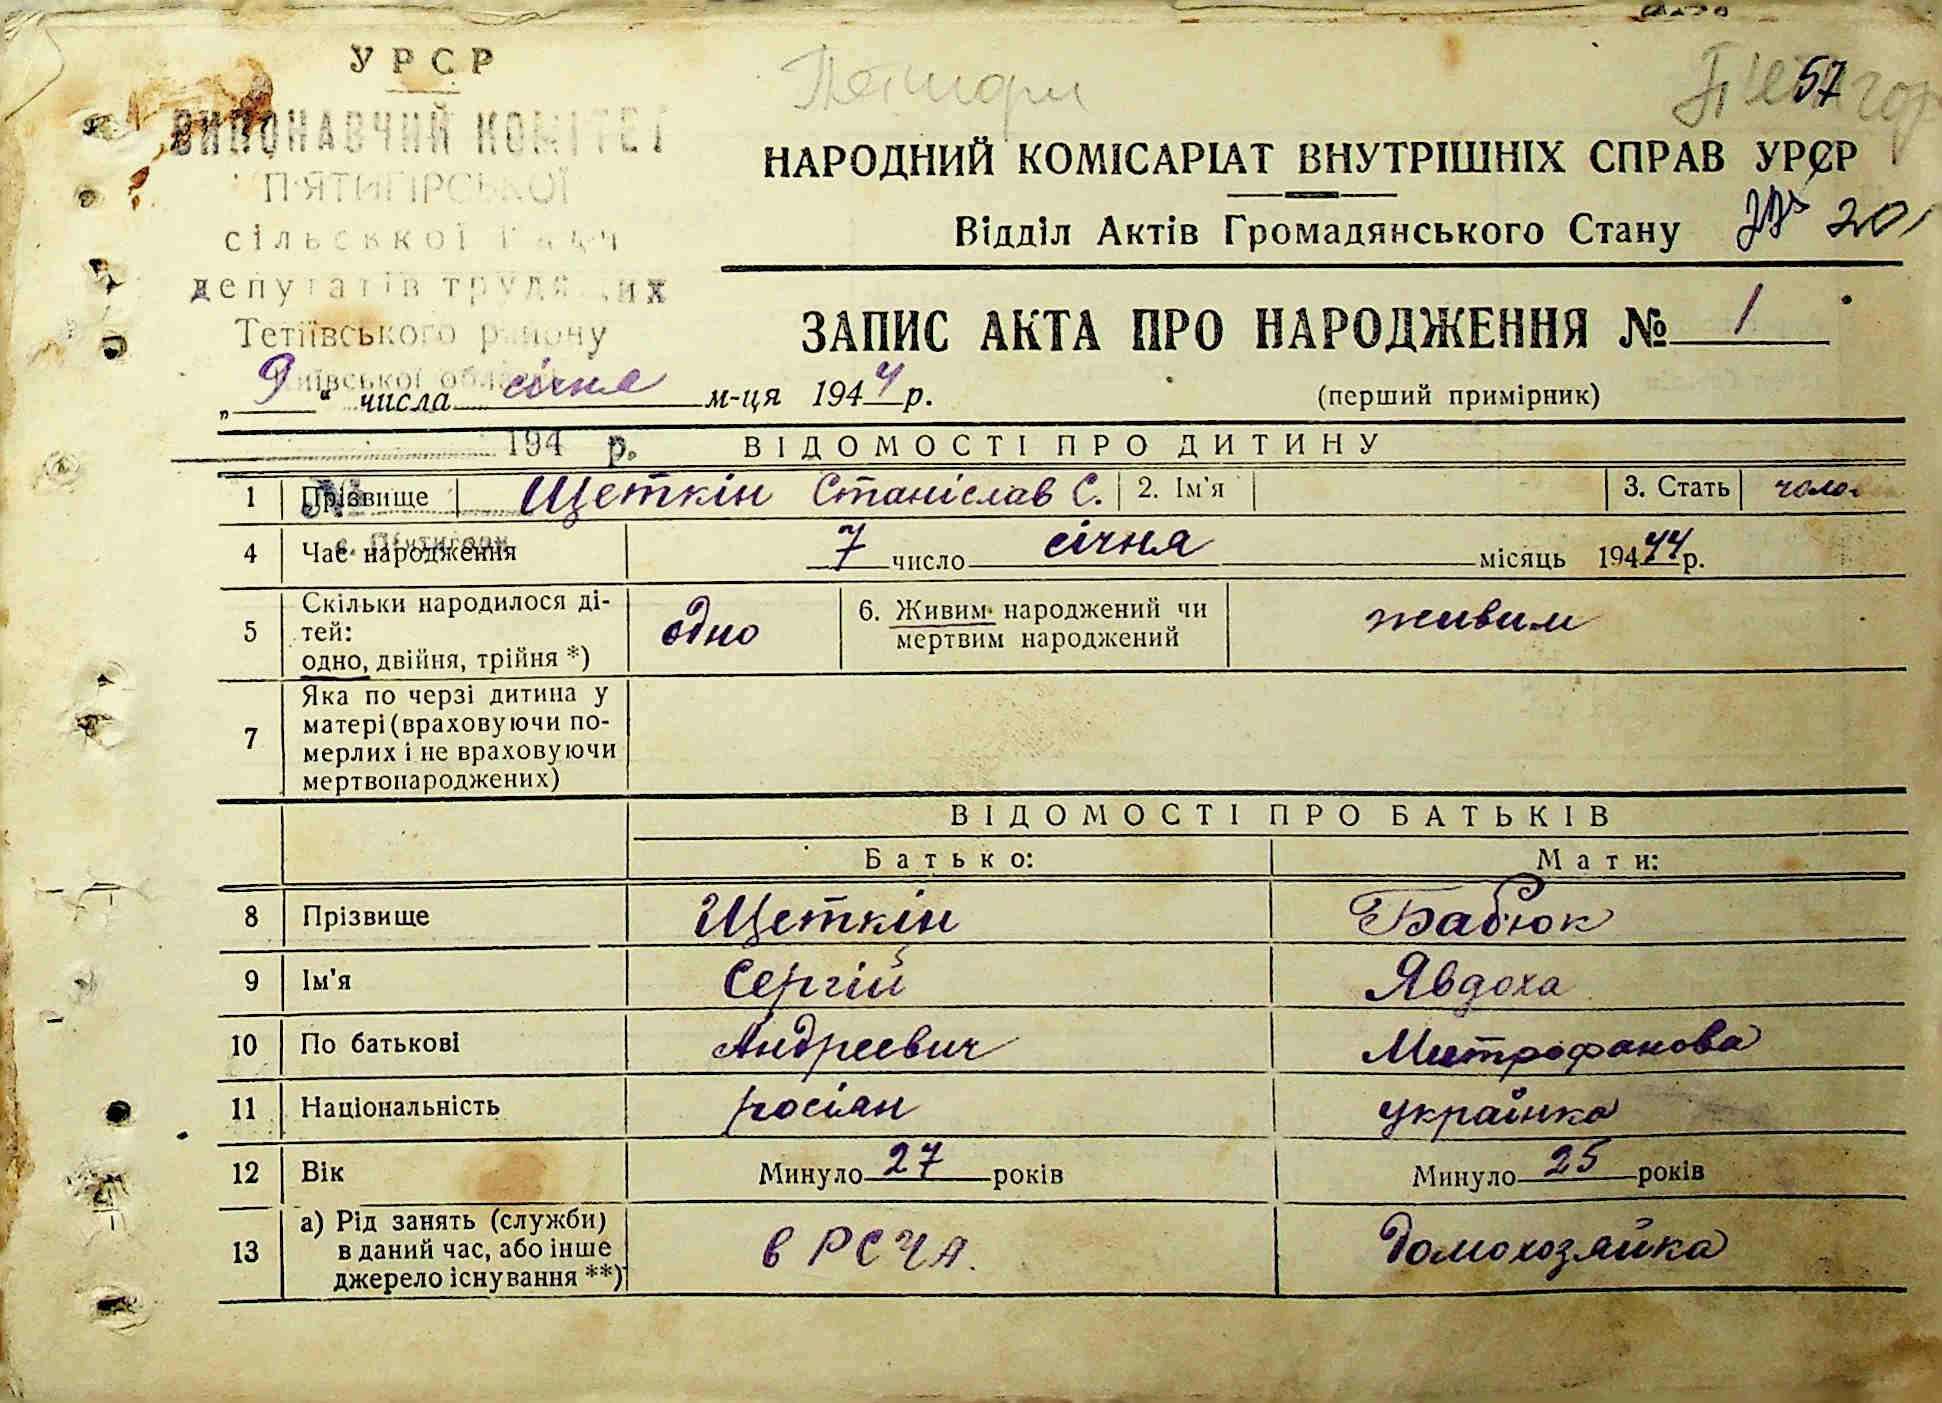 УРСР
ВИКОНАВЧИЙ КОМІТЕТ
П'ЯТИГІРСЬКОЇ
сільської Ради
депутатів трудящих
Тетіївського району
Київської області
194 р.
№
с. Пятигори
Пятигор
57
НАРОДНИЙ КОМІСАРІАТ ВНУТРІШНІХ СПРАВ УРСР
Відділ Актів Громадянського Стану
20
ЗАПИС АКТА ПРО НАРОДЖЕННЯ № 1
„9“ числа січня м-ця 1944 р.
(перший примірник)
ВІДОМОСТІ ПРО ДИТИНУ
1 Прізвище Щеткін Станіслав С. 2. Ім'я 3. Стать чолов
4 Час народження 7 число січня місяць 19444 р.
5 Скільки народилося ді-
тей:
одно, двійня, трійня *) одно
6. Живим народжений чи
мертвим народжений живим
7 Яка по черзі дитина у
матері (враховуючи по-
мерлих і не враховуючи
мертвонароджених)
ВІДОМОСТІ ПРО БАТЬКІВ
Батько: Мати:
8 Прізвище Щеткін Бабюк
9 Ім'я Сергій Явдоха
10 По батькові Андреевич Митрофанова
11 Національність росіян українка
12 Вік Минуло 27 років Минуло 25 років
13 а) Рід занять (служби)
в даний час, або інше
джерело існування **) в РСЧА. домохозяйка